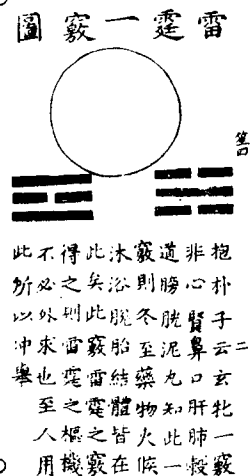 雷霆一竅圖
抱朴子云玄牝一竅
非心賢鼻口肝肺穀
道膀胱泥丸知此一
竅則冬至藥物火候
沐浴脫胎結體皆在
此矣此竅雷霆之竅
得之則雷霆之樞機
不必外求也至人用
此所以冲舉
二